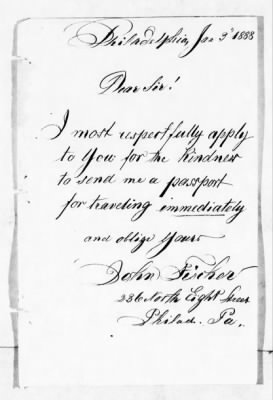 Philadelphia, Jan 3d 1888
Dear Sir!
I most respectfully apply
to You for the Kindness
to send me a passport
for traveling immediately
and oblige Yours
John Fischer
236 North Eight Street
Philad. Pa.